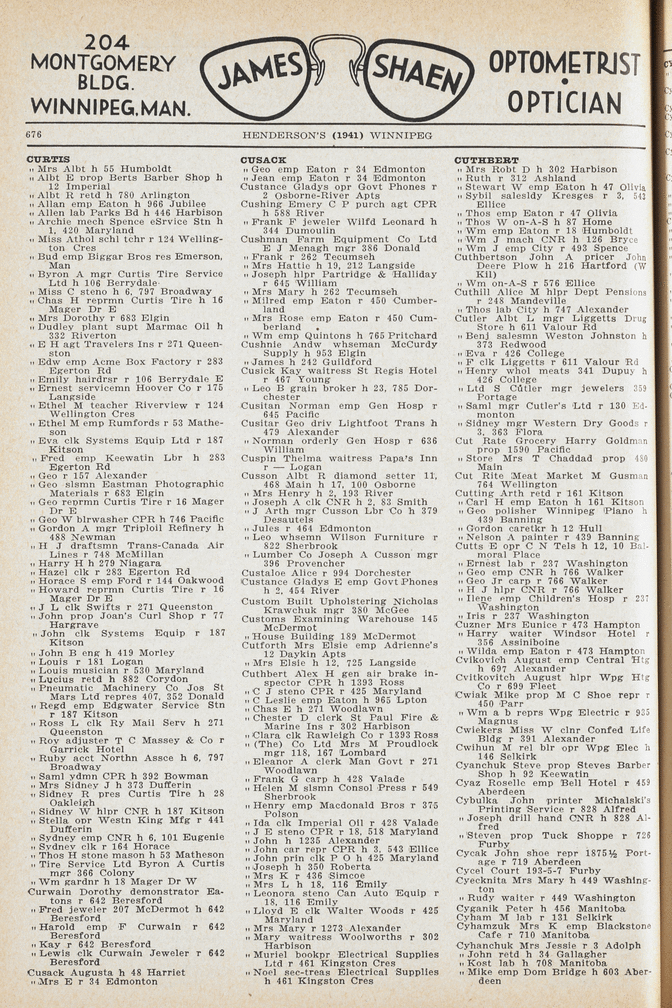 204
MONTGOMERY
BLDG.
WINNIPEG, MAN.
JAMES
SHAEN
OPTOMETRIST
•
OPTICIAN
676
HENDERSON'S (1941) WINNIPEG
CURTIS
" Mrs Albt h 55 Humboldt
" Albt E prop Berts Barber Shop h
12 Imperial
" Albt R retd h 780 Arlington
" Allan emp Eaton h 966 Jubilee
" Allen lab Parks Bd h 446 Harbison
" Archie mech Spence eService Stn h
1, 420 Maryland
" Miss Athol schl tchr r 124 Welling-
ton Cres
" Bud emp Biggar Bros res Emerson,
Man
" Byron A mgr Curtis Tire Service
Ltd h 106 Berrydale
" Miss C steno h 6, 797 Broadway
" Chas H reprmn Curtis Tire h 16
Mager Dr E
" Mrs Dorothy r 683 Elgin
" Dudley plant supt Marmac Oil h
332 Riverton
" E H agt Travelers Ins r 271 Queen-
ston
" Edw emp Acme Box Factory r 283
Egerton Rd
" Emily hairdrsr r 106 Berrydale E
" Ernest servicemn Hoover Co r 175
Langside
" Ethel M teacher Riverview r 124
Wellington Cres
" Ethel M emp Rumfords r 53 Mathe-
son
" Eva clk Systems Equip Ltd r 187
Kitson
" Fred emp Keewatin Lbr h 283
Egerton Rd
" Geo r 157 Alexander
" Geo slsmn Eastman Photographic
Materials r 683 Elgin
" Geo reprmn Curtis Tire r 16 Mager
Dr E
" Geo W birwasher CPR h 746 Pacific
" Gordon A mgr Triploil Refinery h
488 Newman
" H J draftsmn Trans-Canada Air
Lines r 748 McMillan
" Harry H h 279 Niagara
" Hazel clk r 283 Egerton Rd
" Horace S emp Ford r 144 Oakwood
" Howard reprmn Curtis Tire r 16
Mager Dr E
" J L clk Swifts r 271 Queenston
" John prop Joan's Curl Shop r 77
Hargrave
" John clk Systems Equip r 187
Kitson
" John B eng h 419 Morley
" Louis r 181 Logan
" Louis musician r 530 Maryland
" Lucius retd h 882 Corydon
" Pneumatic Machinery Co Jos St
Mars Ltd repres 407, 352 Donald
" Regd emp Edgwater Service Stn
r 187 Kitson
" Ross L clk Ry Mail Serv h 271
Queenston
" Roy adjuster T C Massey & Co r
Garrick Hotel
" Ruby acct Northn Assce h 6, 797
Broadway
" Saml ydmn CPR h 392 Bowman
" Mrs Sidney J h 373 Dufferin
" Sidney R pres Curtis Tire h 28
Oakleigh
" Sidney W hlpr CNR h 187 Kitson
" Stella opr Westn King Mfg r 441
Dufferin
" Sydney emp CNR h 6, 101 Eugenie
" Sydney clk r 164 Horace
" Thos H stone mason h 53 Matheson
" Tire Service Ltd Byron A Curtis
mgr 366 Colony
" Wm gardnr h 18 Mager Dr W
Curwain Dorothy demonstrator Ea-
tons r 642 Beresford
" Fred jeweler 207 McDermot h 642
Beresford
" Harold emp F Curwain r 642
Beresford
" Kay r 642 Beresford
" Lewis clk Curwain Jeweler r 642
Beresford
Cusack Augusta h 48 Harriet
" Mrs E r 34 Edmonton
CUSACK
" Geo emp Eaton r 34 Edmonton
" Jean emp Eaton r 34 Edmonton
Custance Gladys opr Govt Phones r
2 Osborne-River Apts
Cushing Emery C P purch agt CPR
h 588 River
" Frank F jeweler Wilfd Leonard h
344 Dumoulin
Cushman Farm Equipment Co Ltd
E J Menagh mgr 386 Donald
" Frank r 262 Tecumseh
" Mrs Hattie h 19, 212 Langside
" Joseph hlpr Partridge & Halliday
r 645 William
" Mrs Mary h 262 Tecumseh
" Milred emp Eaton r 450 Cumber-
land
" Mrs Rose emp Eaton r 450 Cum-
berland
" Wm emp Quintons h 765 Pritchard
Cushnie Andw whseman McCurdy
Supply h 953 Elgin
" James h 242 Guildford
Cusick Kay waitress St Regis Hotel
r 467 Young
" Leo B grain broker h 23, 785 Dor-
chester
Cusitan Norman emp Gen Hosp r
645 Pacific
Cusitar Geo driv Lightfoot Trans h
479 Alexander
" Norman orderly Gen Hosp r 636
William
Cuspin Thelma waitress Papa's Inn
r — Logan
Cusson Albt R diamond setter 11,
468 Main h 17, 100 Osborne
" Mrs Henry h 2, 193 River
" Joseph A clk CNR h 2, 83 Smith
" J Arth mgr Cusson Lbr Co h 379
Desautels
" Jules r 464 Edmonton
" Leo whsemn Wilson Furniture r
822 Sherbrook
" Lumber Co Joseph A Cusson mgr
396 Provencher
Custaloe Alice r 994 Dorchester
Custance Gladys E emp Govt Phones
h 2, 454 River
Custom Built Upholstering Nicholas
Krawchuk mgr 380 McGee
Customs Examining Warehouse 145
McDermot
" House Building 189 McDermot
Cutforth Mrs Elsie emp Adrienne's
12 Daykin Apts
" Mrs Elsie h 12, 725 Langside
Cuthbert Alex H gen air brake in-
spector CPR h 1393 Ross
" C J steno CPR r 425 Maryland
" C Leslie emp Eaton h 965 Lpton
" Chas E h 271 Woodlawn
" Chester D clerk St Paul Fire &
Marine Ins r 302 Harbison
" Clara clk Rawleigh Co r 1393 Ross
" (The) Co Ltd Mrs M Proudlock
mgr 118, 167 Lombard
" Eleanor A clerk Man Govt r 271
Woodlawn
" Frank G carp h 428 Valade
" Helen M slsmn Consol Press r 549
Sherbrook
" Henry emp Macdonald Bros r 375
Polson
" Ida clk Imperial Oil r 428 Valade
" J E steno CPR r 18, 518 Maryland
" John h 1235 Alexander
" John car repr CPR h 3, 543 Ellice
" John prin clk P O h 425 Maryland
" Joseph h 350 Roberta
" Mrs K r 436 Simcoe
" Mrs L h 18, 116 Emily
" Leonora steno Can Auto Equip r
18, 116 Emily
" Lloyd E clk Walter Woods r 425
Maryland
" Mrs Mary r 1273 Alexander
" Mary waitress Woolworths r 302
Harbison
" Muriel bookpr Electrical Supplies
Ltd r 461 Kingston Cres
" Noel sec-treas Electrical Supplies
h 461 Kingston Cres
CUTHBERT
" Mrs Robt D h 302 Harbison
" Ruth r 312 Ashland
" Stewart W emp Eaton h 47 Olivia
" Sybil salesldy Kresges r 3, 543
Ellice
" Thos emp Eaton r 47 Olivia
" Thos W on-A-S h 87 Home
" Wm emp Eaton r 18 Humboldt
" Wm J mach CNR h 126 Bryce
" Wm J emp City r 493 Spence
Cuthbertson John A pricer John
Deere Plow h 216 Hartford (W
Kil)
" Wm on-A-S r 576 Ellice
Cuthill Alice M hlpr Dept Pensions
r 248 Mandeville
" Thos lab City h 747 Alexander
Cutler Albt L mgr Liggetts Drug
Store h 611 Valour Rd
" Benj salesmn Weston Johnston h
373 Redwood
" Eva r 426 College
" F clk Liggetts r 611 Valour Rd
" Henry whol meats 341 Dupuy h
426 College
" Ltd S Cutler mgr jewelers 359
Portage
" Saml mgr Cutler's Ltd r 130 Ed-
monton
" Sidney mgr Western Dry Goods r
3, 363 Flora
Cut Rate Grocery Harry Goldman
prop 1590 Pacific
" Store Mrs T Chaddad prop 480
Main
Cut Rite Meat Market M Gusman
764 Wellington
Cutting Arth retd r 161 Kitson
" Carl H emp Eaton h 161 Kitson
" Geo polisher Winnipeg Piano h
439 Banning
" Gordon caretkr h 12 Hull
" Nelson A painter r 439 Banning
Cutts E opr C N Tels h 12, 10 Bal-
moral Place
" Ernest lab r 237 Washington
" Geo emp CNR h 766 Walker
" Geo Jr carp r 766 Walker
" H J hlpr CNR r 766 Walker
" Ilene emp Children's Hosp r 237
Washington
" Iris r 237 Washington
Cuzner Mrs Eunice r 473 Hampton
" Harry waiter Windsor Hotel r
356 Assiniboine
" Wilda emp Eaton r 473 Hampton
Cvikovich August emp Central Htg
h 697 Alexander
Cvitkovitch August hlpr Wpg Htg
Co r 699 Fleet
Cwiak Mike prop M C Shoe repr r
450 Parr
" Wm a b reprs Wpg Electric r 935
Magnus
Cwiekers Miss W clnr Confed Life
Bldg r 391 Alexander
Cwihun M rel blr opr Wpg Elec h
146 Selkirk
Cyanchuk Steve prop Steves Barber
Shop h 92 Keewatin
Cyaz Roselle emp Bell Hotel r 459
Aberdeen
Cybulka John printer Michalski's
Printing Service r 828 Alfred
" Joseph drill hand CNR h 828 Al-
fred
" Steven prop Tuck Shoppe r 726
Furby
Cycak John shoe repr 1875½ Port-
age r 719 Aberdeen
Cycel Court 193-5-7 Furby
Cyecknita Mrs Mary h 449 Washing-
ton
" Rudy waiter r 449 Washington
Cyganik Peter h 456 Manitoba
Cyham M lab r 131 Selkirk
Cyhamzuk Mrs K emp Blackstone
Cafe r 710 Manitoba
Cyhanchuk Mrs Jessie r 3 Adolph
" John retd h 34 Gallagher
" Kost lab h 708 Manitoba
" Mike emp Dom Bridge h 603 Aber-
deen